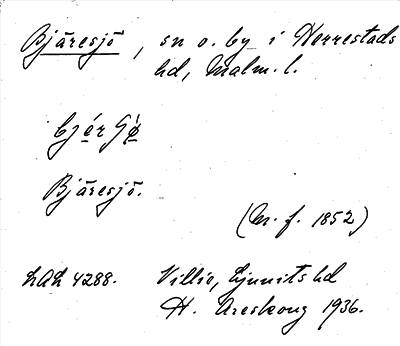 Bjäresjö, sn o. by i Herrestads
hd, Malm. l.
bjér
Bjäresjö.
(M. f. 1852)
LAL 4288. Villie, Ljunits hd
H. Areskoug 1936.